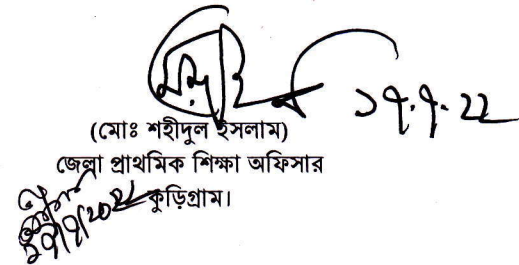 ১৭.৭.২২
(মোঃ শহীদুল ইসলাম)
জেলা প্রাথমিক শিক্ষা অফিসার
কুড়িগ্রাম।